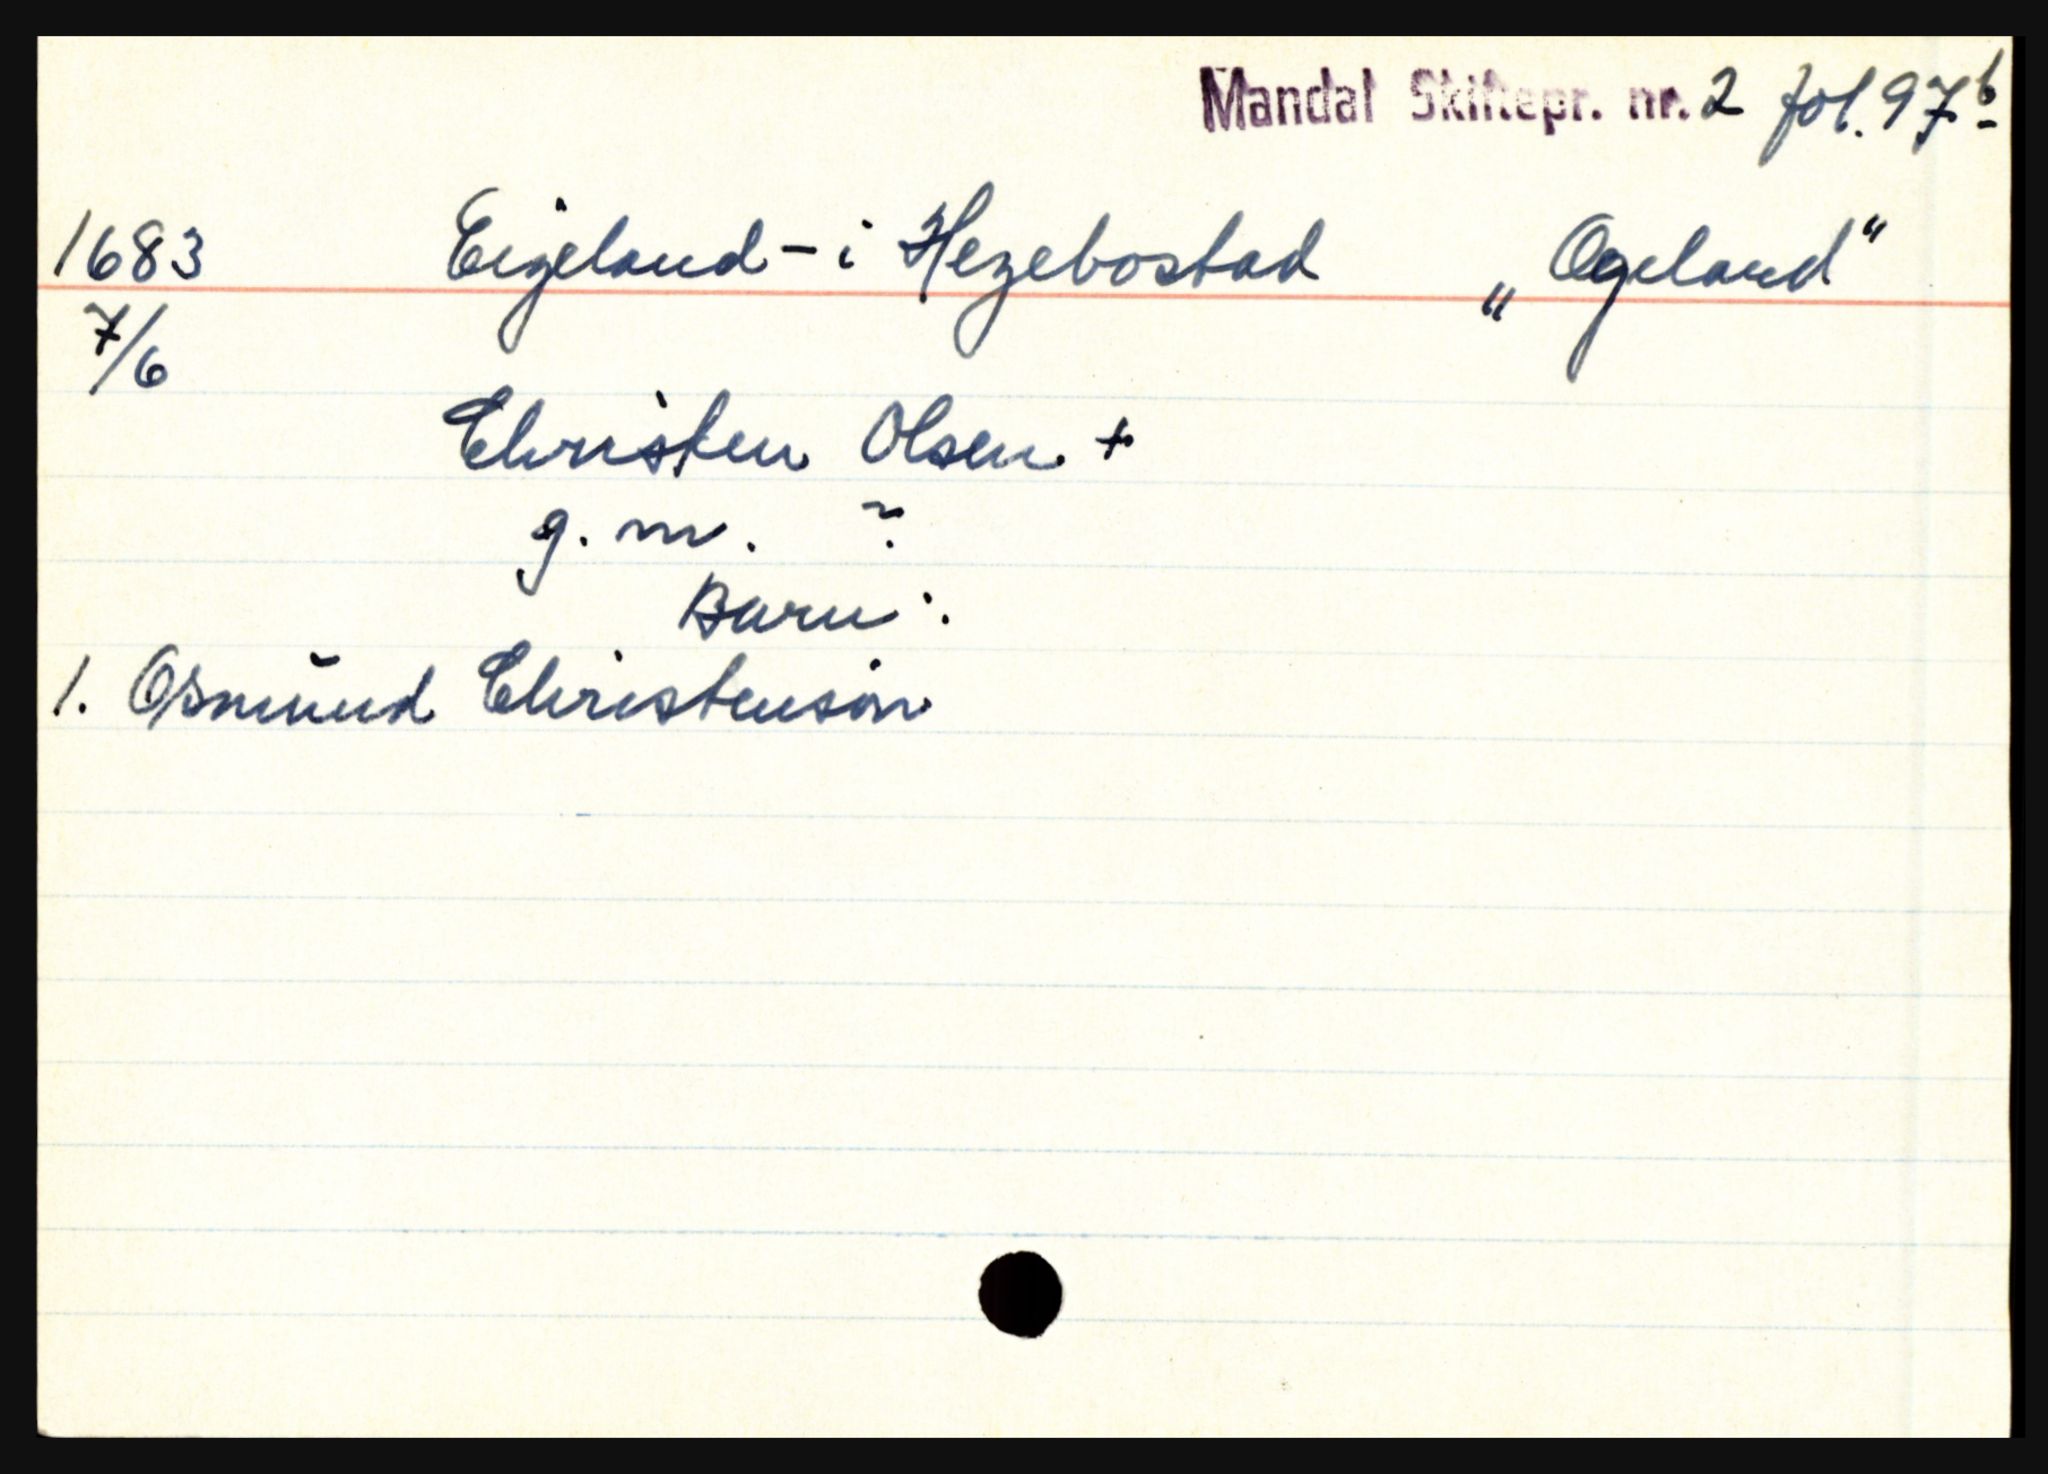 Mandal Skiftepr. nr. 2 fol. 97b
1683 Eigeland - i Hegebostad „Ogeland“
7/6
Christen Olsen +
g. m. ?
Barn:
1. Osmund Christensøn